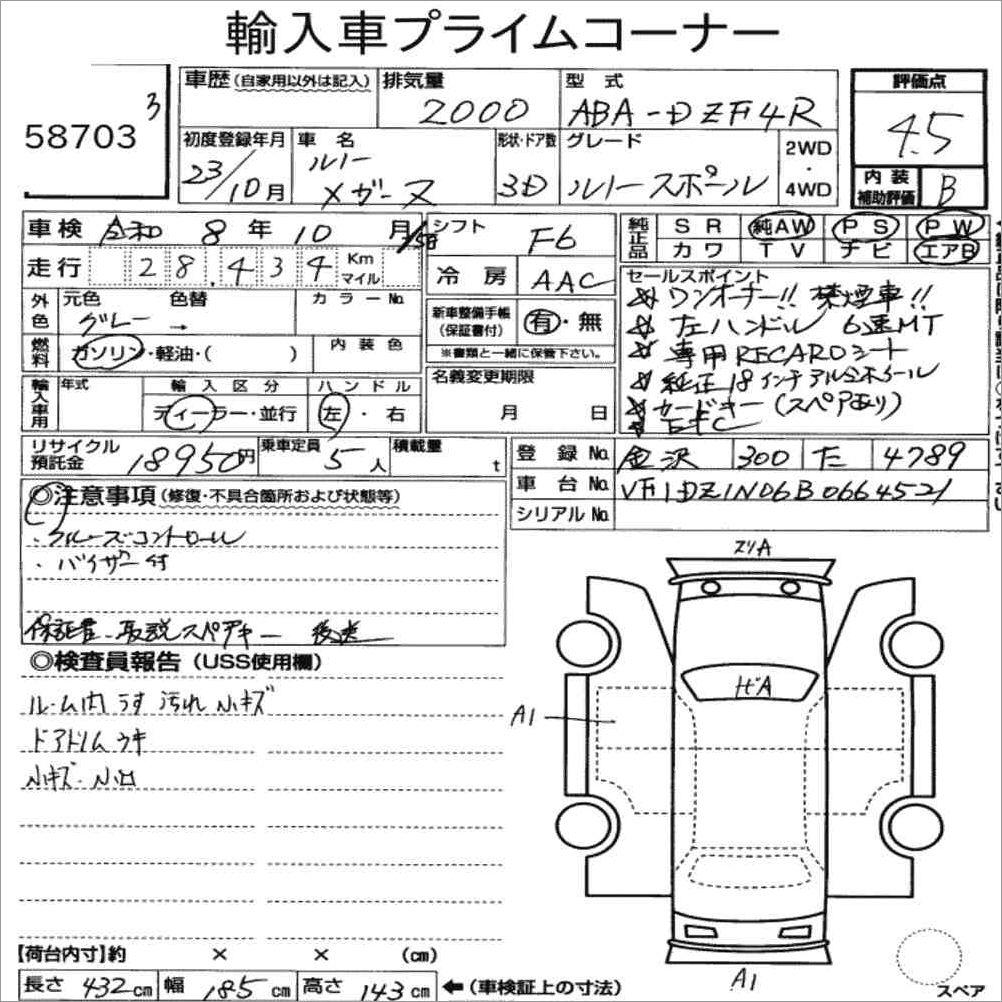 輸入車プライムコーナー
58703
3
車歴 (自家用以外は記入)
排気量
2000
型 式
ABA-DZF4R
評価点
4.5
初度登録年月
23/10月
車 名
ルノー
メガーヌ
形状・ドア数
3D
グレード
ルノースポール
2WD
・
4WD
内 装
補助評価
B
車検 令和 8 年 10 月
走行 28,434 Km
マイル
シフト F6
冷 房 AAC
純正品
SR 純AW PS PW
カワ TV ナビ エアB
外色
元色 色替 カラーNo.
グレー →
燃料
ガソリン・軽油・( )
内 装 色
新車整備手帳
(保証書付)
有・無
※書類と一緒に保管下さい。
セールスポイント
ワンオーナー!! 禁煙車!!
左ハンドル 6速MT
専用RECAROシート
純正18インチアルミホイール
カードキー(スペアあり)
輸入車用
年式
輸 入 区 分
ディーラー・並行
ハ ン ド ル
左・右
名義変更期限
月 日
リサイクル
預託金
18950円
乗車定員
5人
積載量
t
登 録 No. 金沢 300 た 4789
車 台 No. VF1DZ1N06B0664521
シリアル No.
◎注意事項 (修復・不具合箇所および状態等)
・クルーズコントロール
・バイザー付
保証書・取説スペアキー 後送
◎検査員報告(USS使用欄)
ルーム内うす汚れ小キズ
ドアトリムウキ
小キズ・小凹
エリA
ガA
A1
A1
スペア
【荷台内寸】約 × × (cm)
長さ 432cm 幅 185cm 高さ 143cm ←(車検証上の寸法)